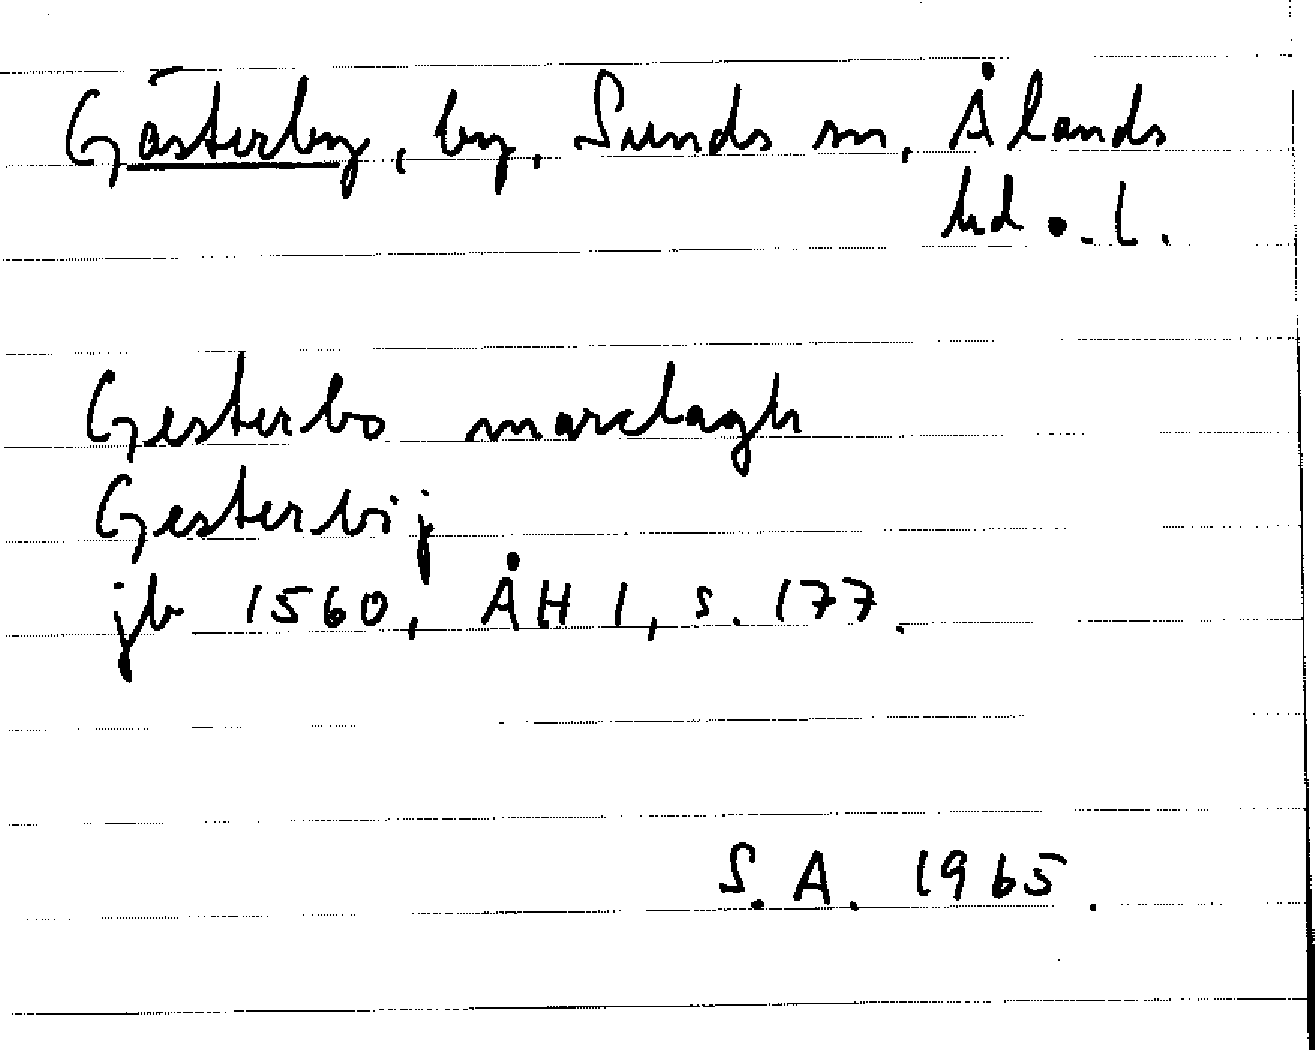 Gästerby, by, Sunds sn, Ålands
hd o. l.
Gesterbo marclagh
Gesterbij
jb 1560, ÅH 1, s. 177.
S.A. 1965.